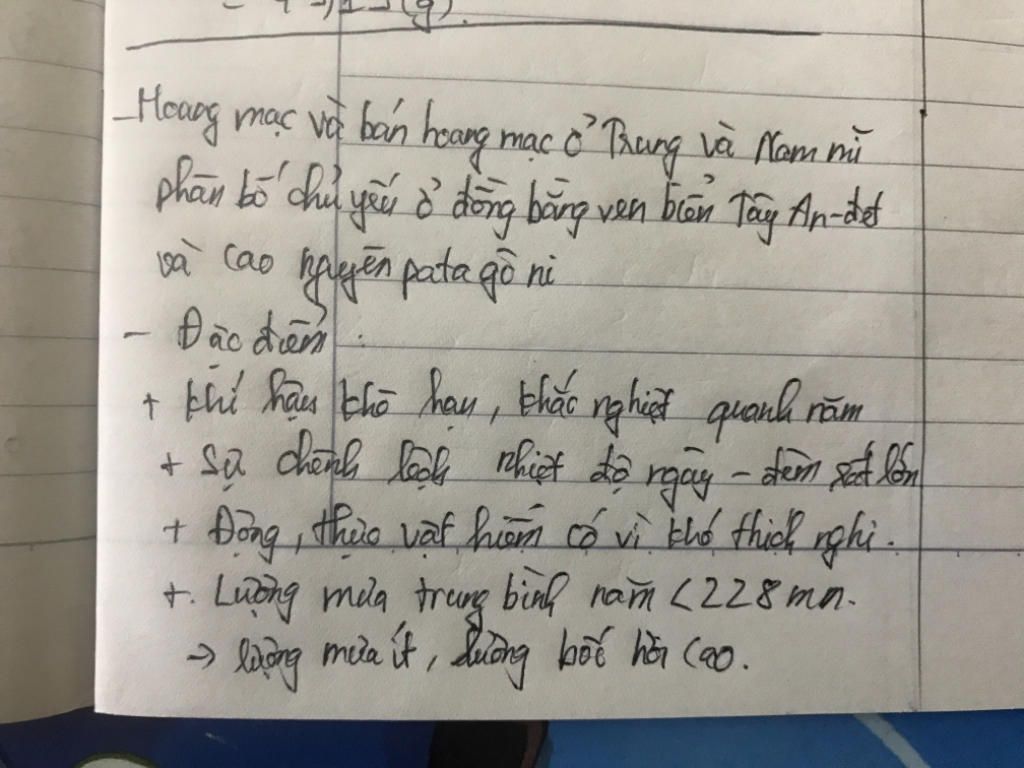 - Hoang mạc và bán hoang mạc ở Trung và Nam mĩ
phân bố chủ yếu ở đồng bằng ven biển Tây An-đet
và cao nguyên pata gô ni
- Đặc điểm :
+ khí hậu khô hạn, khắc nghiệt quanh năm
+ Sự chênh lệch nhiệt độ ngày - đêm rất lớn
+ Động, thực vật hiếm có vì khó thích nghi.
+. Lượng mưa trung bình năm < 228 mn.
→ lượng mưa ít, lượng bốc hơi cao.